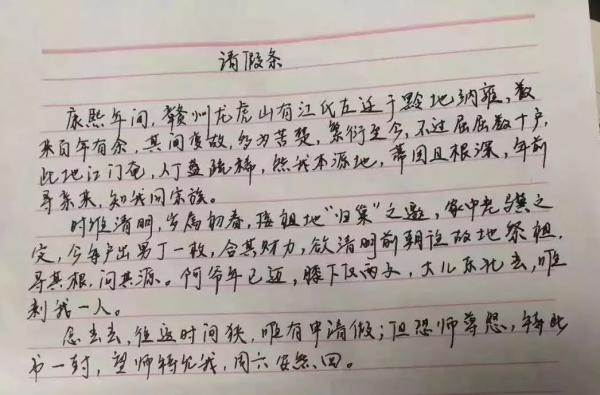 请假条
康熙年间,赣州龙虎山有江氏左迁于黔地纳雍,数
来百年有余,其间变故,多为苦楚,繁衍至今,不过屈屈数十户,
此地江门奄,人丁益疏稀,然我本源地,蒂固且根深,年前
寻亲来,知我同宗族。
时维清明,岁属初春,接祖地“归巢”之邀,家中老誤之
定,今每户出男丁一枚,合其财力,欲清明前朝诣故地祭祖,
寻其根,问其源。阿爷年已迈,膝下仅两子,大儿东北去,唯
剩我一人。
念去去,往返时间狭,唯有申请假;但恐师尊怒,特此
书一封,望师特允我,周六安然回。